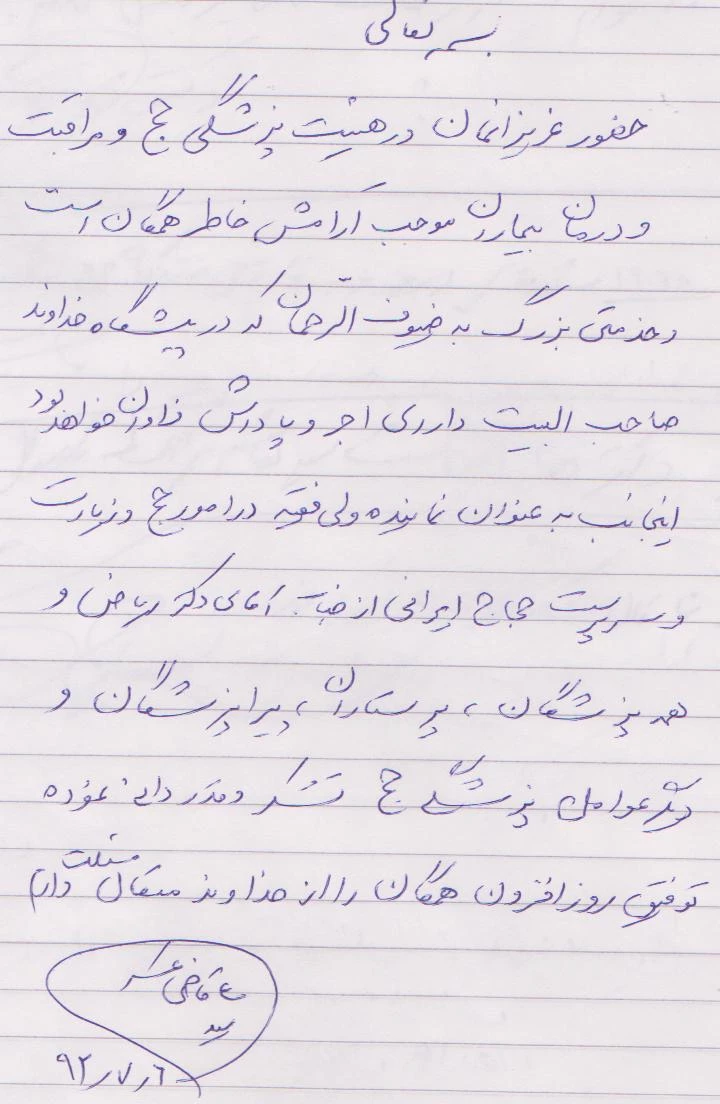 بسمه تعالی
حضور عزیزانمان در هیئت پزشکی حج و مراقبت
و درمان بیماران موجب آرامش خاطر همگان است
و خدمتی بزرگ به ضیوف الرّحمان که در پیشگاه خداوند
صاحب البیت دارای اجر و پاداش فراوان خواهد بود
اینجانب به عنوان نماینده ولی فقیه در امور حج و زیارت
و سرپرست حجاج ایرانی از جناب آقای دکتر ریاض و
همه پزشکان ، پرستاران ، پیراپزشکان و
دیگر عوامل پزشکی حج تشکر و قدردانی نموده
توفیق روز افزون همگان را از خداوند متعال مسئلت دارم
سید ع قاضی عسکر
۹۲٫۷٫۶